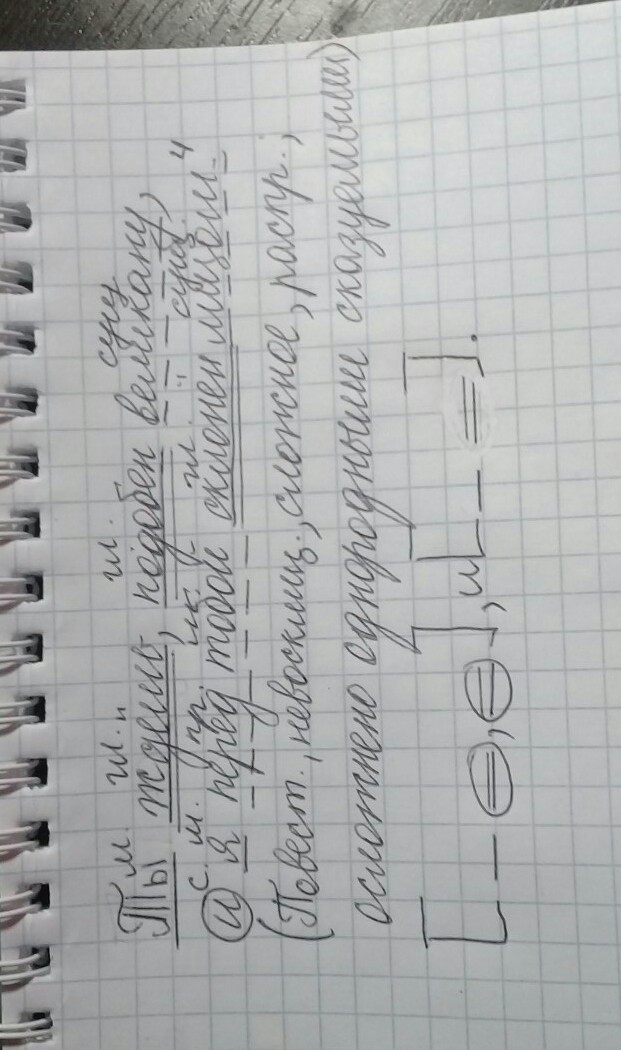 м. гл. гл. сущ
Ты ждешь, подобен великану,
с. м. пр. м. гл. сущ. 4
и я перед тобой склонен лицом.
(Повест., невосклиц., сложное, распр.,
осложнено однородными сказуемыми)
[— =, =], и [— =].